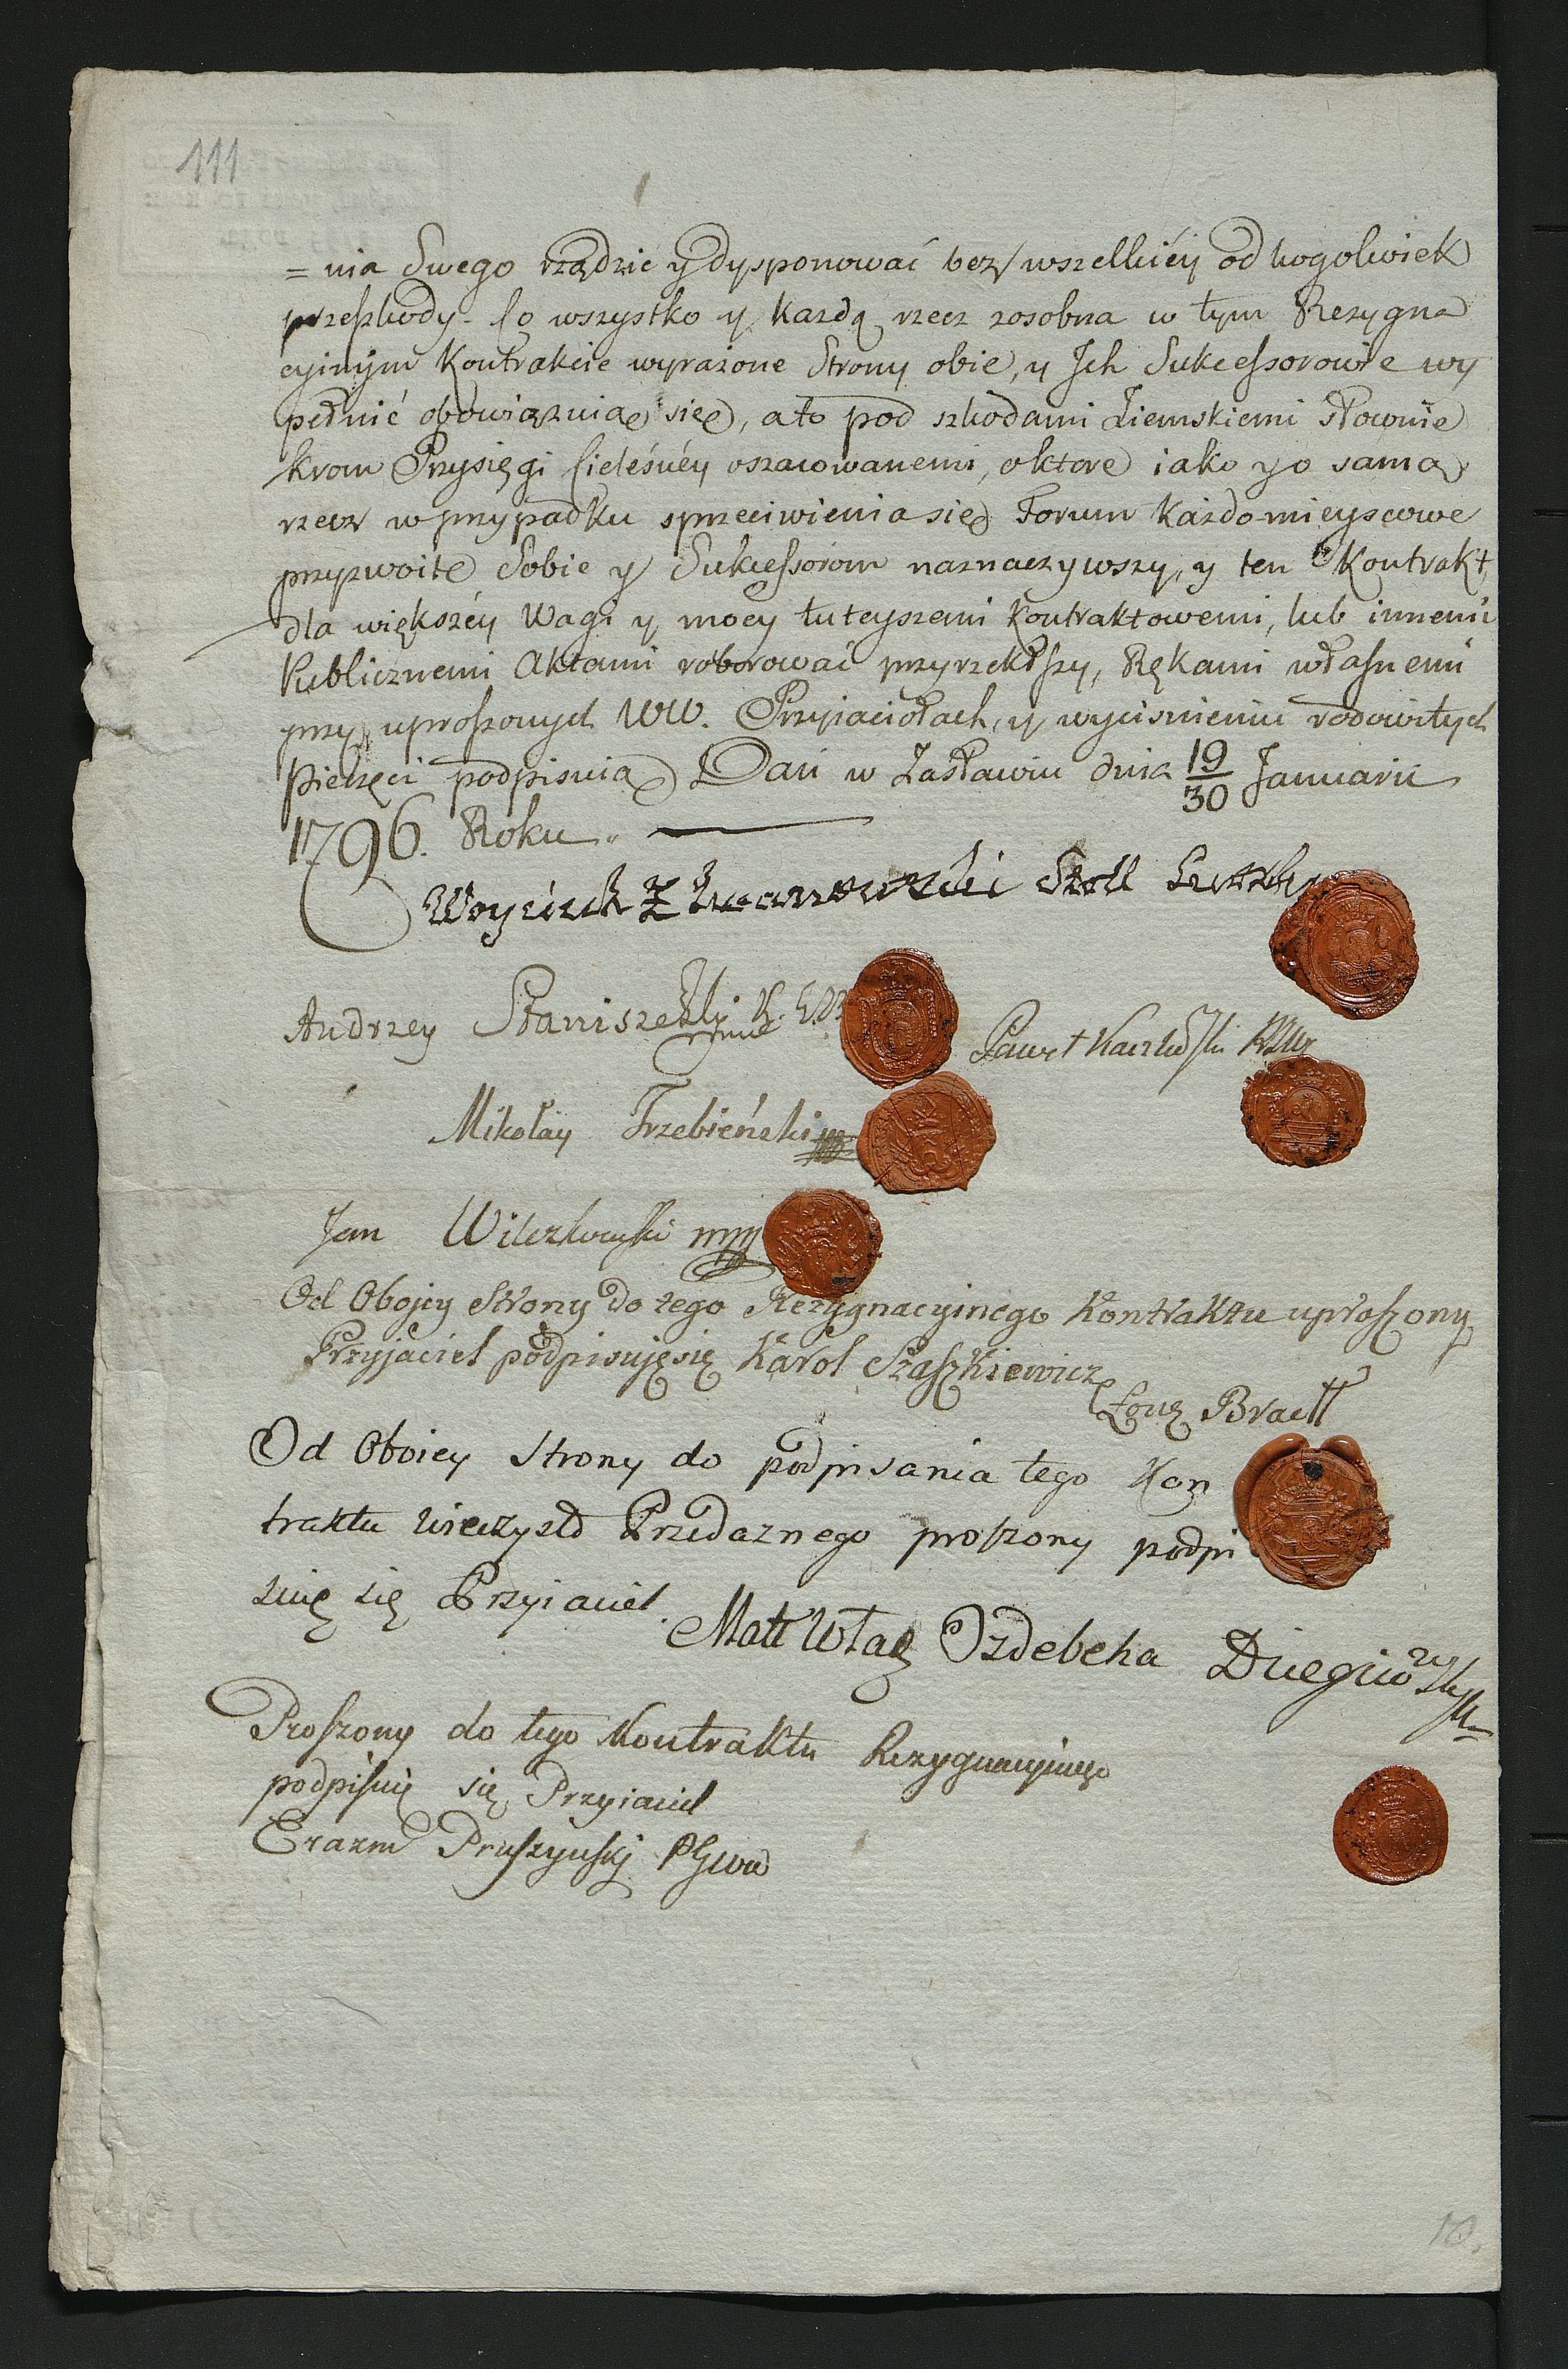 111
= nia Swego rządzić y dysponować bez wszelkiéy od kogolwiek
przeszkody. Co wszystko y każdą rzecz zosobna w tym Rezygna
cyinym Kontrakcie wyrażone Strony obie, y Ich Sukcessorowie wy
pełnić obowiązuią się, a to pod szkodami Ziemskiemi słownie
krom Przysięgi Cieleśnéy oszacowanemi, o które iako y o samą
rzecz w przypadku sprzeciwienia się Forum każdomieyscowe
przyzwoite Sobie y Sukcessorom naznaczywszy, y ten Kontrakt
dla większéy Wagi y mocy tuteyszemi Kontraktowemi, lub innemi
Publicznemi Aktami roborować przyrzekłszy, Rękami własnemi
przy uproszonych WW. Przyiaciołach, y wyciśnieniu rodowitych
Pieczęci podpisuią Dan w Zasławiu dnia 19/30 Januarii
1796. Roku.
Woyciech
Andrzey Staniszewski
Paweł
Mikołay Trzebieński
Jan Wilczkowski mp
Od Obojey Strony do tego Rezygnacyinego Kontraktu uproszony
Przyjaciel podpisuję się Karol Staszkiewicz
Bracł
Od Oboiey Strony do podpisania tego Kon
traktu wieczysto Przedaznego proszony podpi
suię się Przyiaciel.
Matt Właq Izdebcka
Proszony do tego Kontraktu Rezygnacyinego
podpisuię się Przyiaciel
Erazm Pruszyński
10.